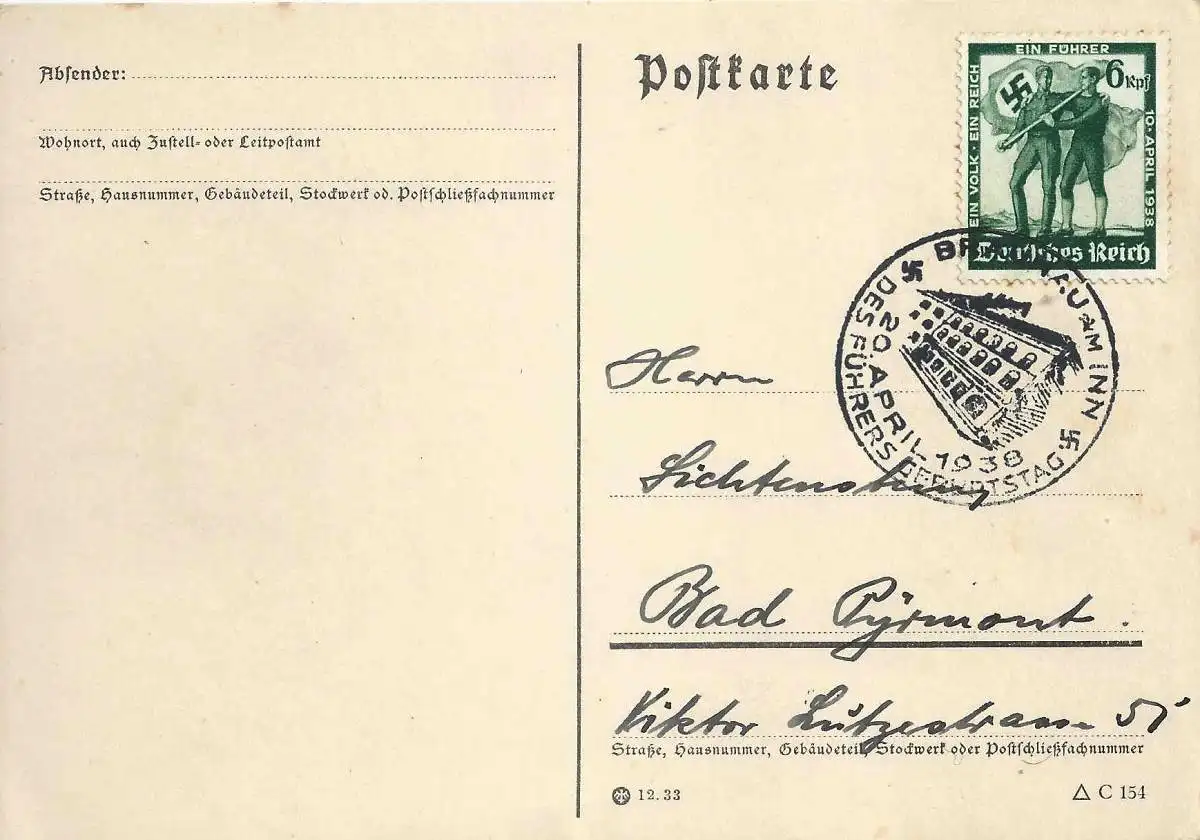 Absender:
Wohnort, auch Zustell- oder Leitpostamt
Straße, Hausnummer, Gebäudeteil, Stockwerk od. Postschließfachnummer
Postkarte
EIN VOLK · EIN REICH
EIN FÜHRER
10. APRIL 1938
6 Rpf
Deutsches Reich
BRAUNAU AM INN
20. APRIL 1938
DES FÜHRERS GEBURTSTAG
Herrn
Bad Pyrmont.
Viktor Lutzestrasse
Straße, Hausnummer, Gebäudeteil, Stockwerk oder Postschließfachnummer
12.33
C 154